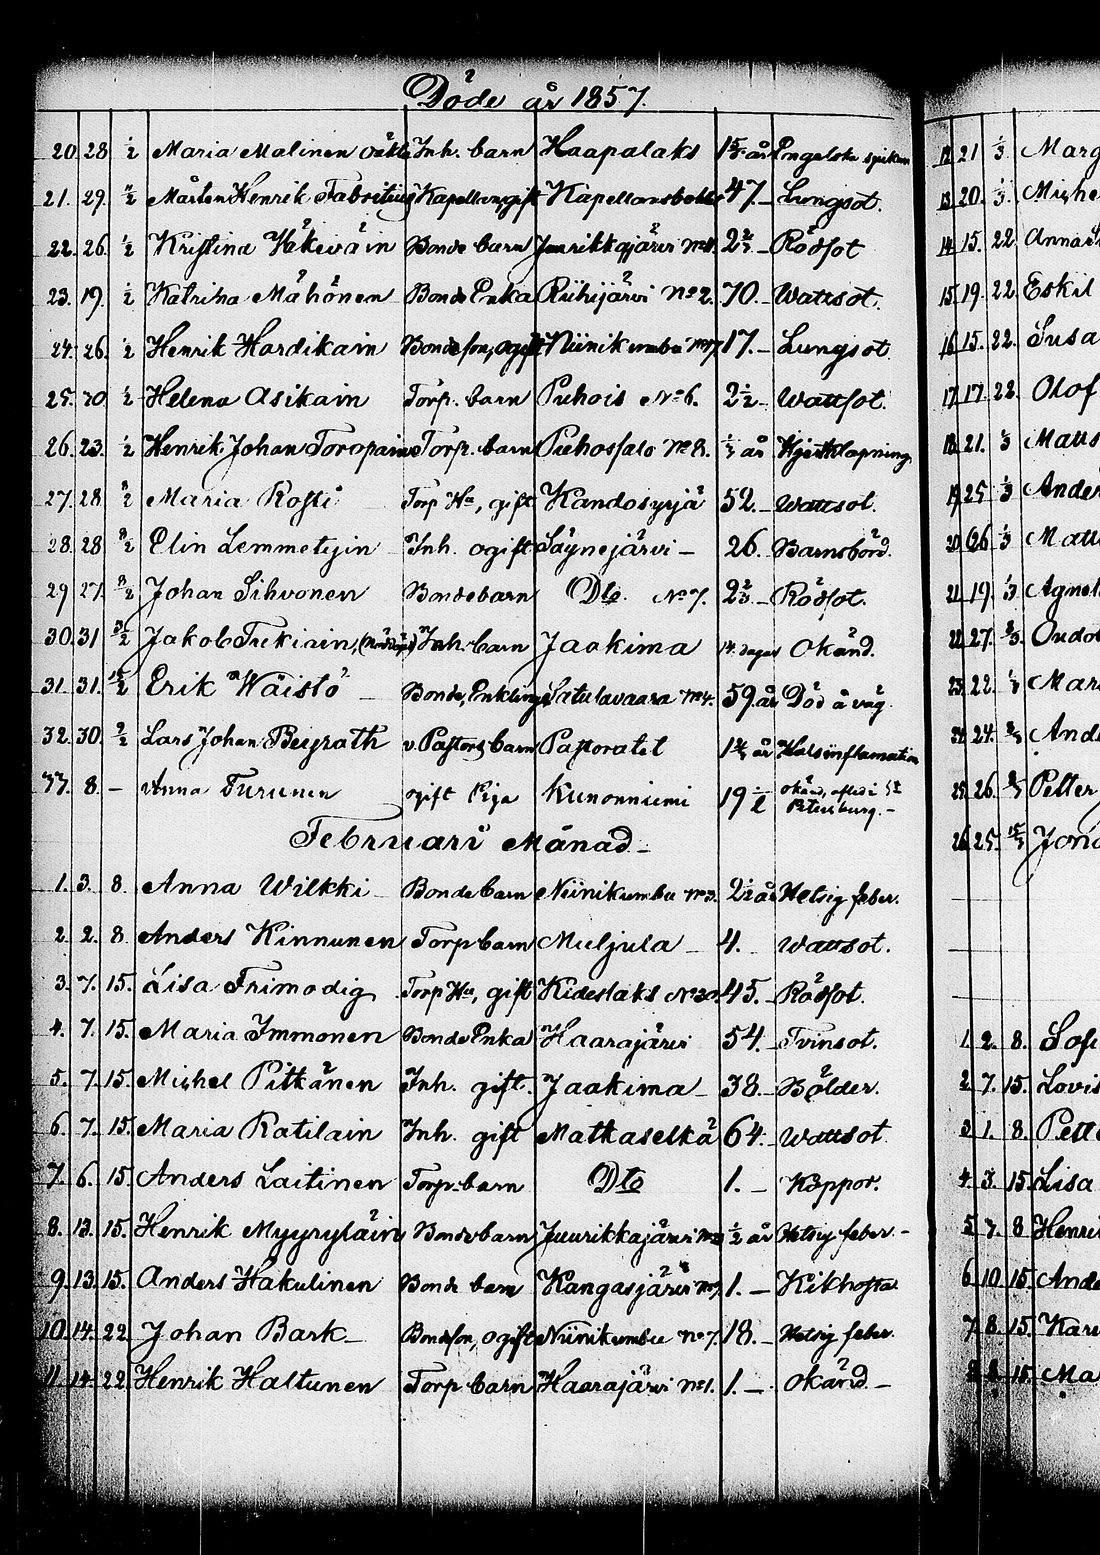 Döde år 1857.
20. 28 1/2 Maria Malinen oäkta Inh. barn Haapalaks år Engelska sjukan
21. 29. Mårten Henrik Fabritius Kapellan, gift 47._ Lungsot.
22. 26. 1/2 Kristina Bonde barn N:o 2 2/3 - Rödsot
23. 19. 1/2 Katrina Mähönen Bonde Enka Riihijärvi N:o 2. 70._ Wattsot.
24. 26. 1/2 Henrik Hardikain Bondeson, ogift Niinikumbu 17._ Lungsot.
25. 30 1/2 Helena Asikain Torp. barn Puhois N:o 6. 2 1/2 - Wattsot.
26. 23. 1/2 Henrik Johan Toropain Torp. barn Puhossalo N:o 8. år Hjertklapning
27. 28 Maria Rosti Torp H:n, gift Kandosyrjä 52._ Wattsot.
28. 28 8/2 Elin Lemmetyin Inh. ogift Säynejärvi - 26. Barnsbörd.
29 27. 8/2 Johan Sihvonen Bondebarn D:to. N:o 7. 2 2/3 - Rödsot.
30. 31 Jakob Tukiain, Inh. barn Jaakima 14. dagar Okänd.
31. 31. 15/2 Erik Wäistö - Bonde, Enkling Satulavaara N:o 4. 59 år Död å väg
32. 30. Lars Johan v. Pastors barn Pastoratet år Halsinflamation
33. 8. - Anna Turunen gift Piga Kunonniemi 19 1/2 Okänd, afled i S:t Petersburg. -
Februari Månad_
1. 3. 8. Anna Wilkki - Bonde barn Niinikumbu N:o 3. 2 1/2 år Hetsig feber.
2. 2. 8. Anders Kinnunen Torp barn Muljula - 4._ Wattsot.
3. 7. 15. Lisa Frimodig Torp H:u, gift Kideslaks N:o 30. 45._ Rödsot.
4. 7. 15. Maria Immonen Bonde Enka Haarajärvi 54._ Tvinsot.
5. 7. 15. Michel Pitkänen Inh. gift. Jaakima - 38._ Bölder.
6. 7. 15. Maria Ratilain Inh. gift Matkaselkä 64._ Wattsot
7. 6. 15. Anders Laitinen Torp. barn D:to 1. - Koppor.
8. 13. 15. Henrik Myyryläin Bondebarn Juurikkajärvi 1/2 år Hetsig feber. -
9. 13. 15. Anders Hakulinen Bonde barn Kangasjärvi 1. - Kikhosta.
10. 14. 22. Johan Bark_ Bondeson, ogift Niinikumbu N:o 7. 18._ Hetsig feber.
11. 14. 22. Henrik Haltunen Torp barn Haarajärvi N:o 1. 1. -. Okänd -
12 21 1/3 Marg
13. 20. 1/3. Miche
14. 15. 22. Anna
15. 19. 22. Eskil
16. 15. 22. Susa
17. 17. 22. Olof
18. 21. 1/3 Matts
19. 25 1/3 Ander
20. 26 1/3 Matt
21. 19. 1/3 Agnet
22. 27. 8/3.
23. 22. Mari
24. 24. Ande
25. 26. Petter
26. 25. 15/3
1. 2. 8. Sofi
2. 7. 15. Lovis
3. 1. 8. Pette
4. 3. 15. Lisa
5. 7. 8 Henri
6. 10. 15. Ande
7. 8. 15. Kari
15. Ma